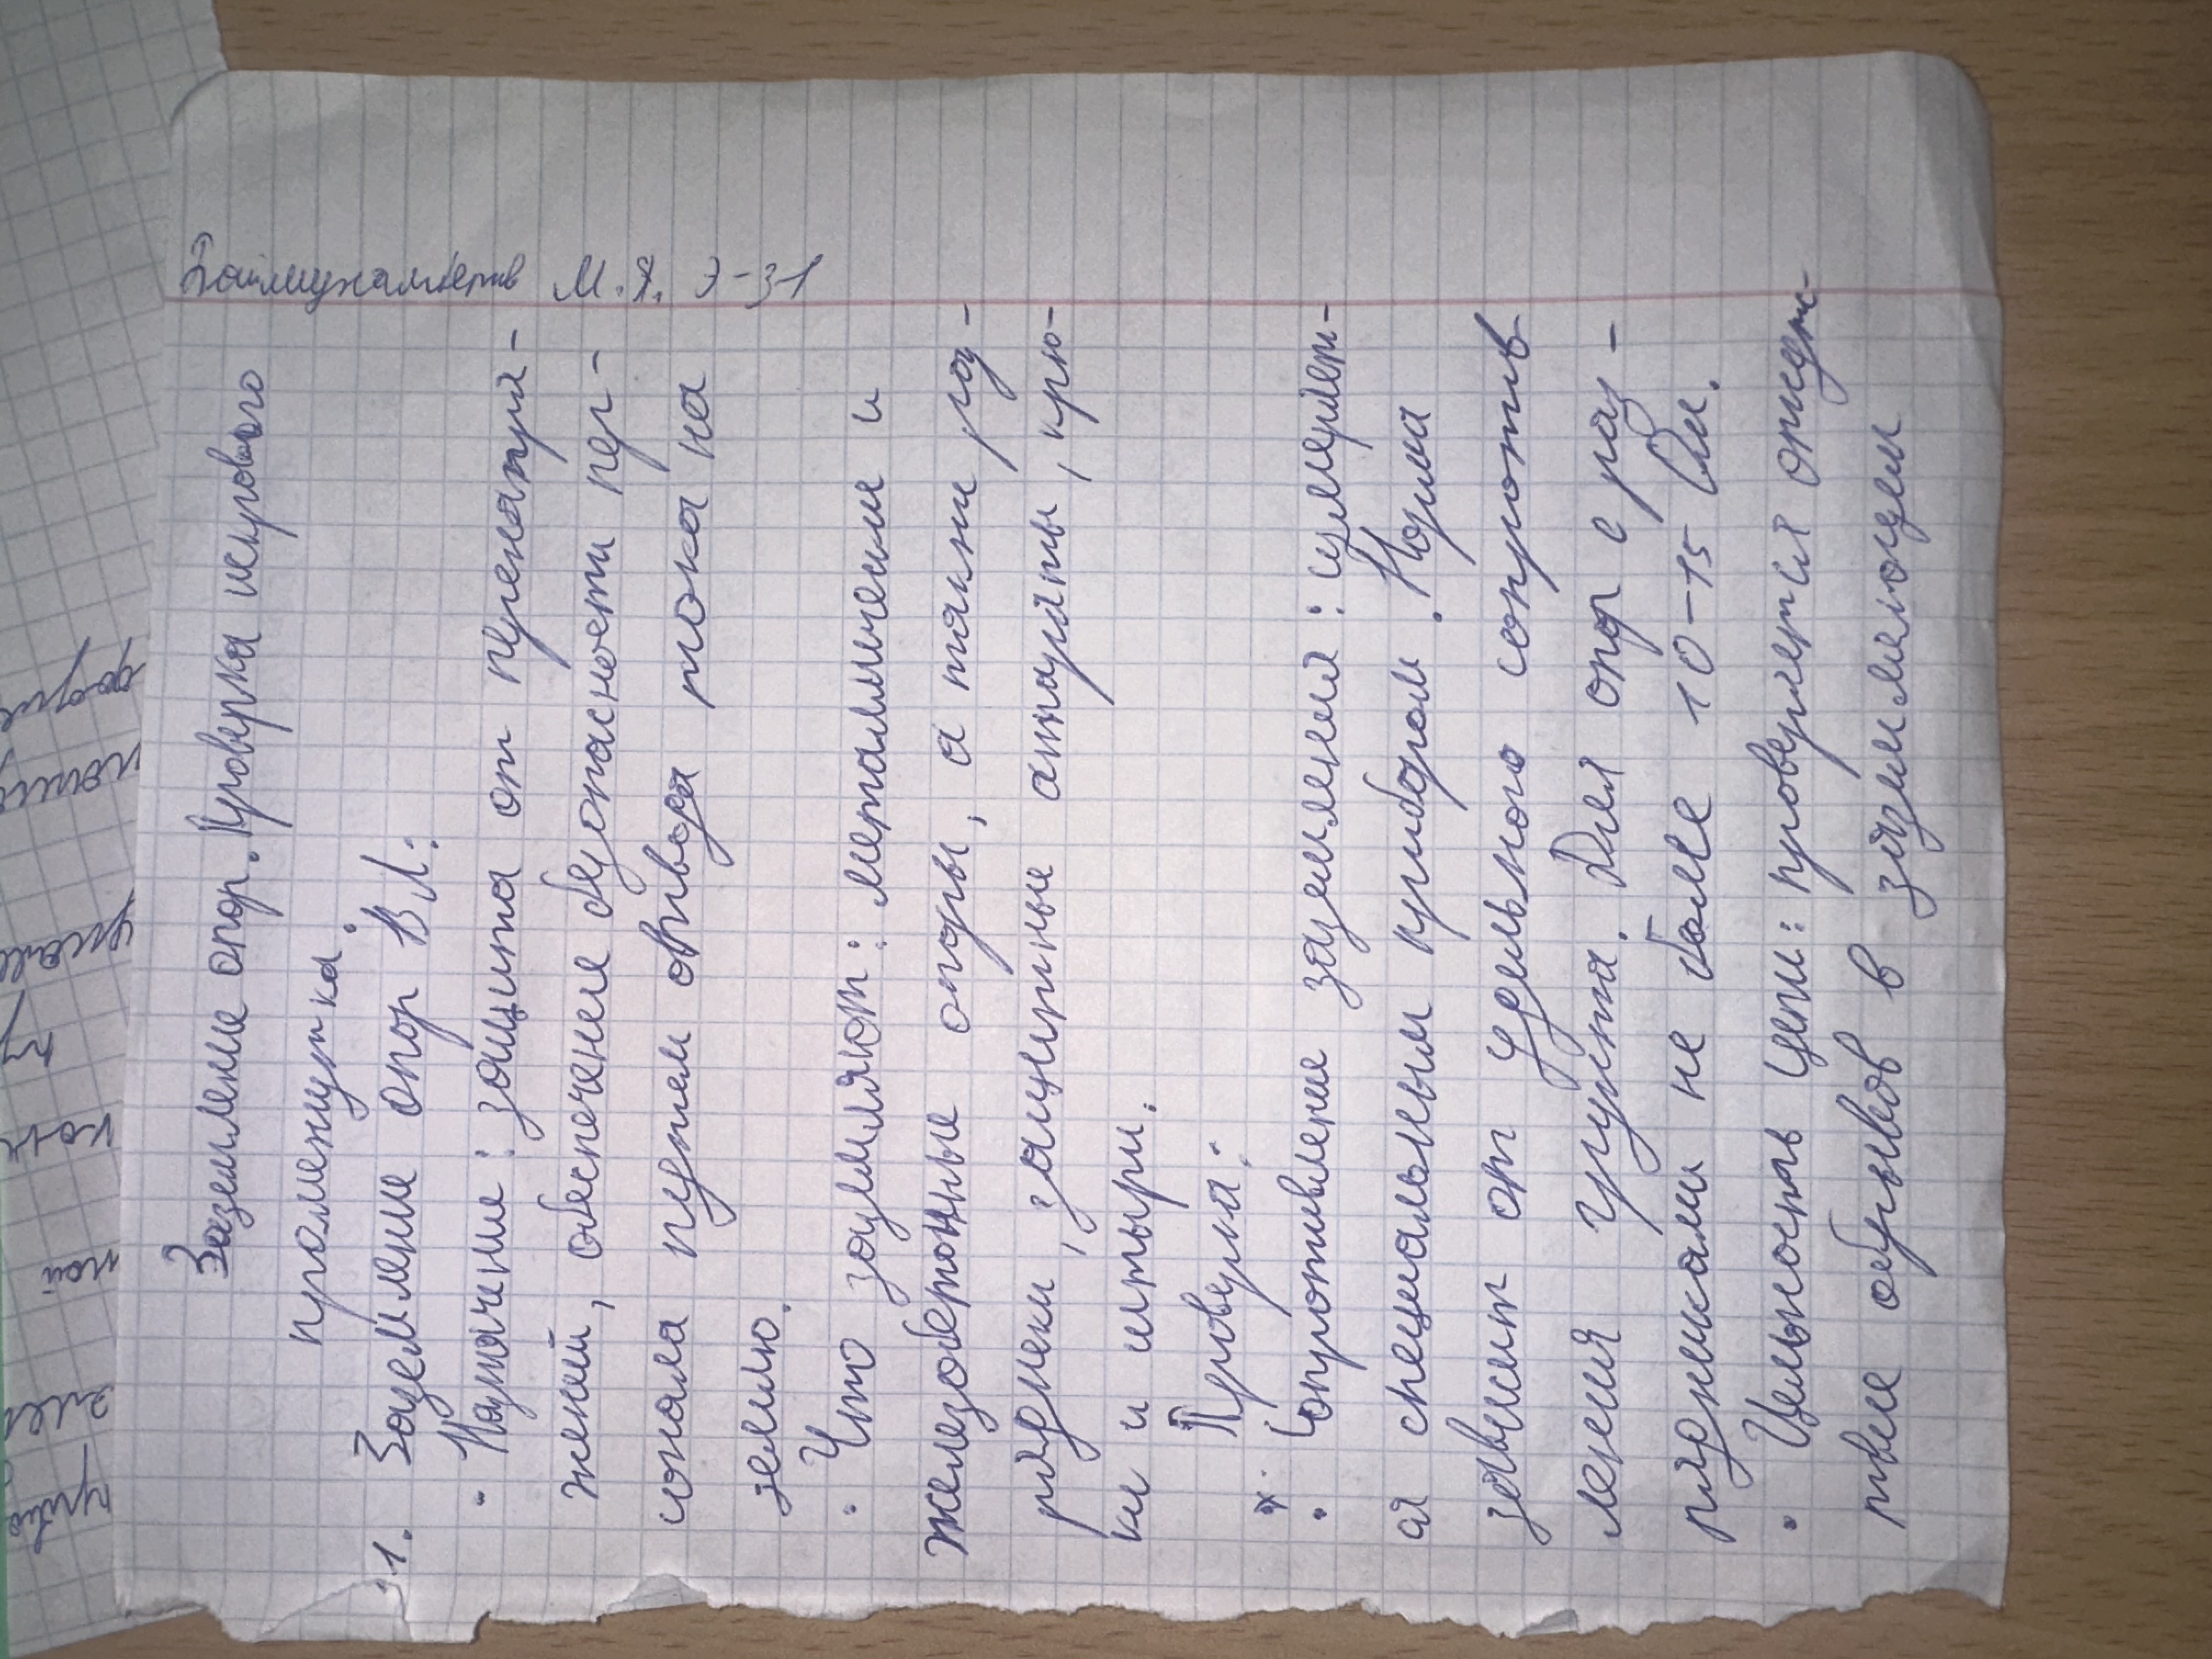 Баймухаметов М.Я. Э-31
Заземление опор. Проверка искрового
промежутка.
1. Заземление опор ВЛ:
• Назначение: защита от перенапря-
жений, обеспечение безопасности пер-
сонала путем отвода тока на
землю.
• Что заземляют: металлические и
железобетонные опоры, а также раз-
рядники, защитные аппараты, крю-
ки и штыри.
* Проверка:
• Сопротивление заземления: измеряет-
ся специальным прибором. Норма
зависит от удельного сопротив
ления грунта. Для опор с раз-
рядниками не более 10-15 Ом.
• Цельность цепи: проверяется отсутс-
твие обрывов в заземляющем